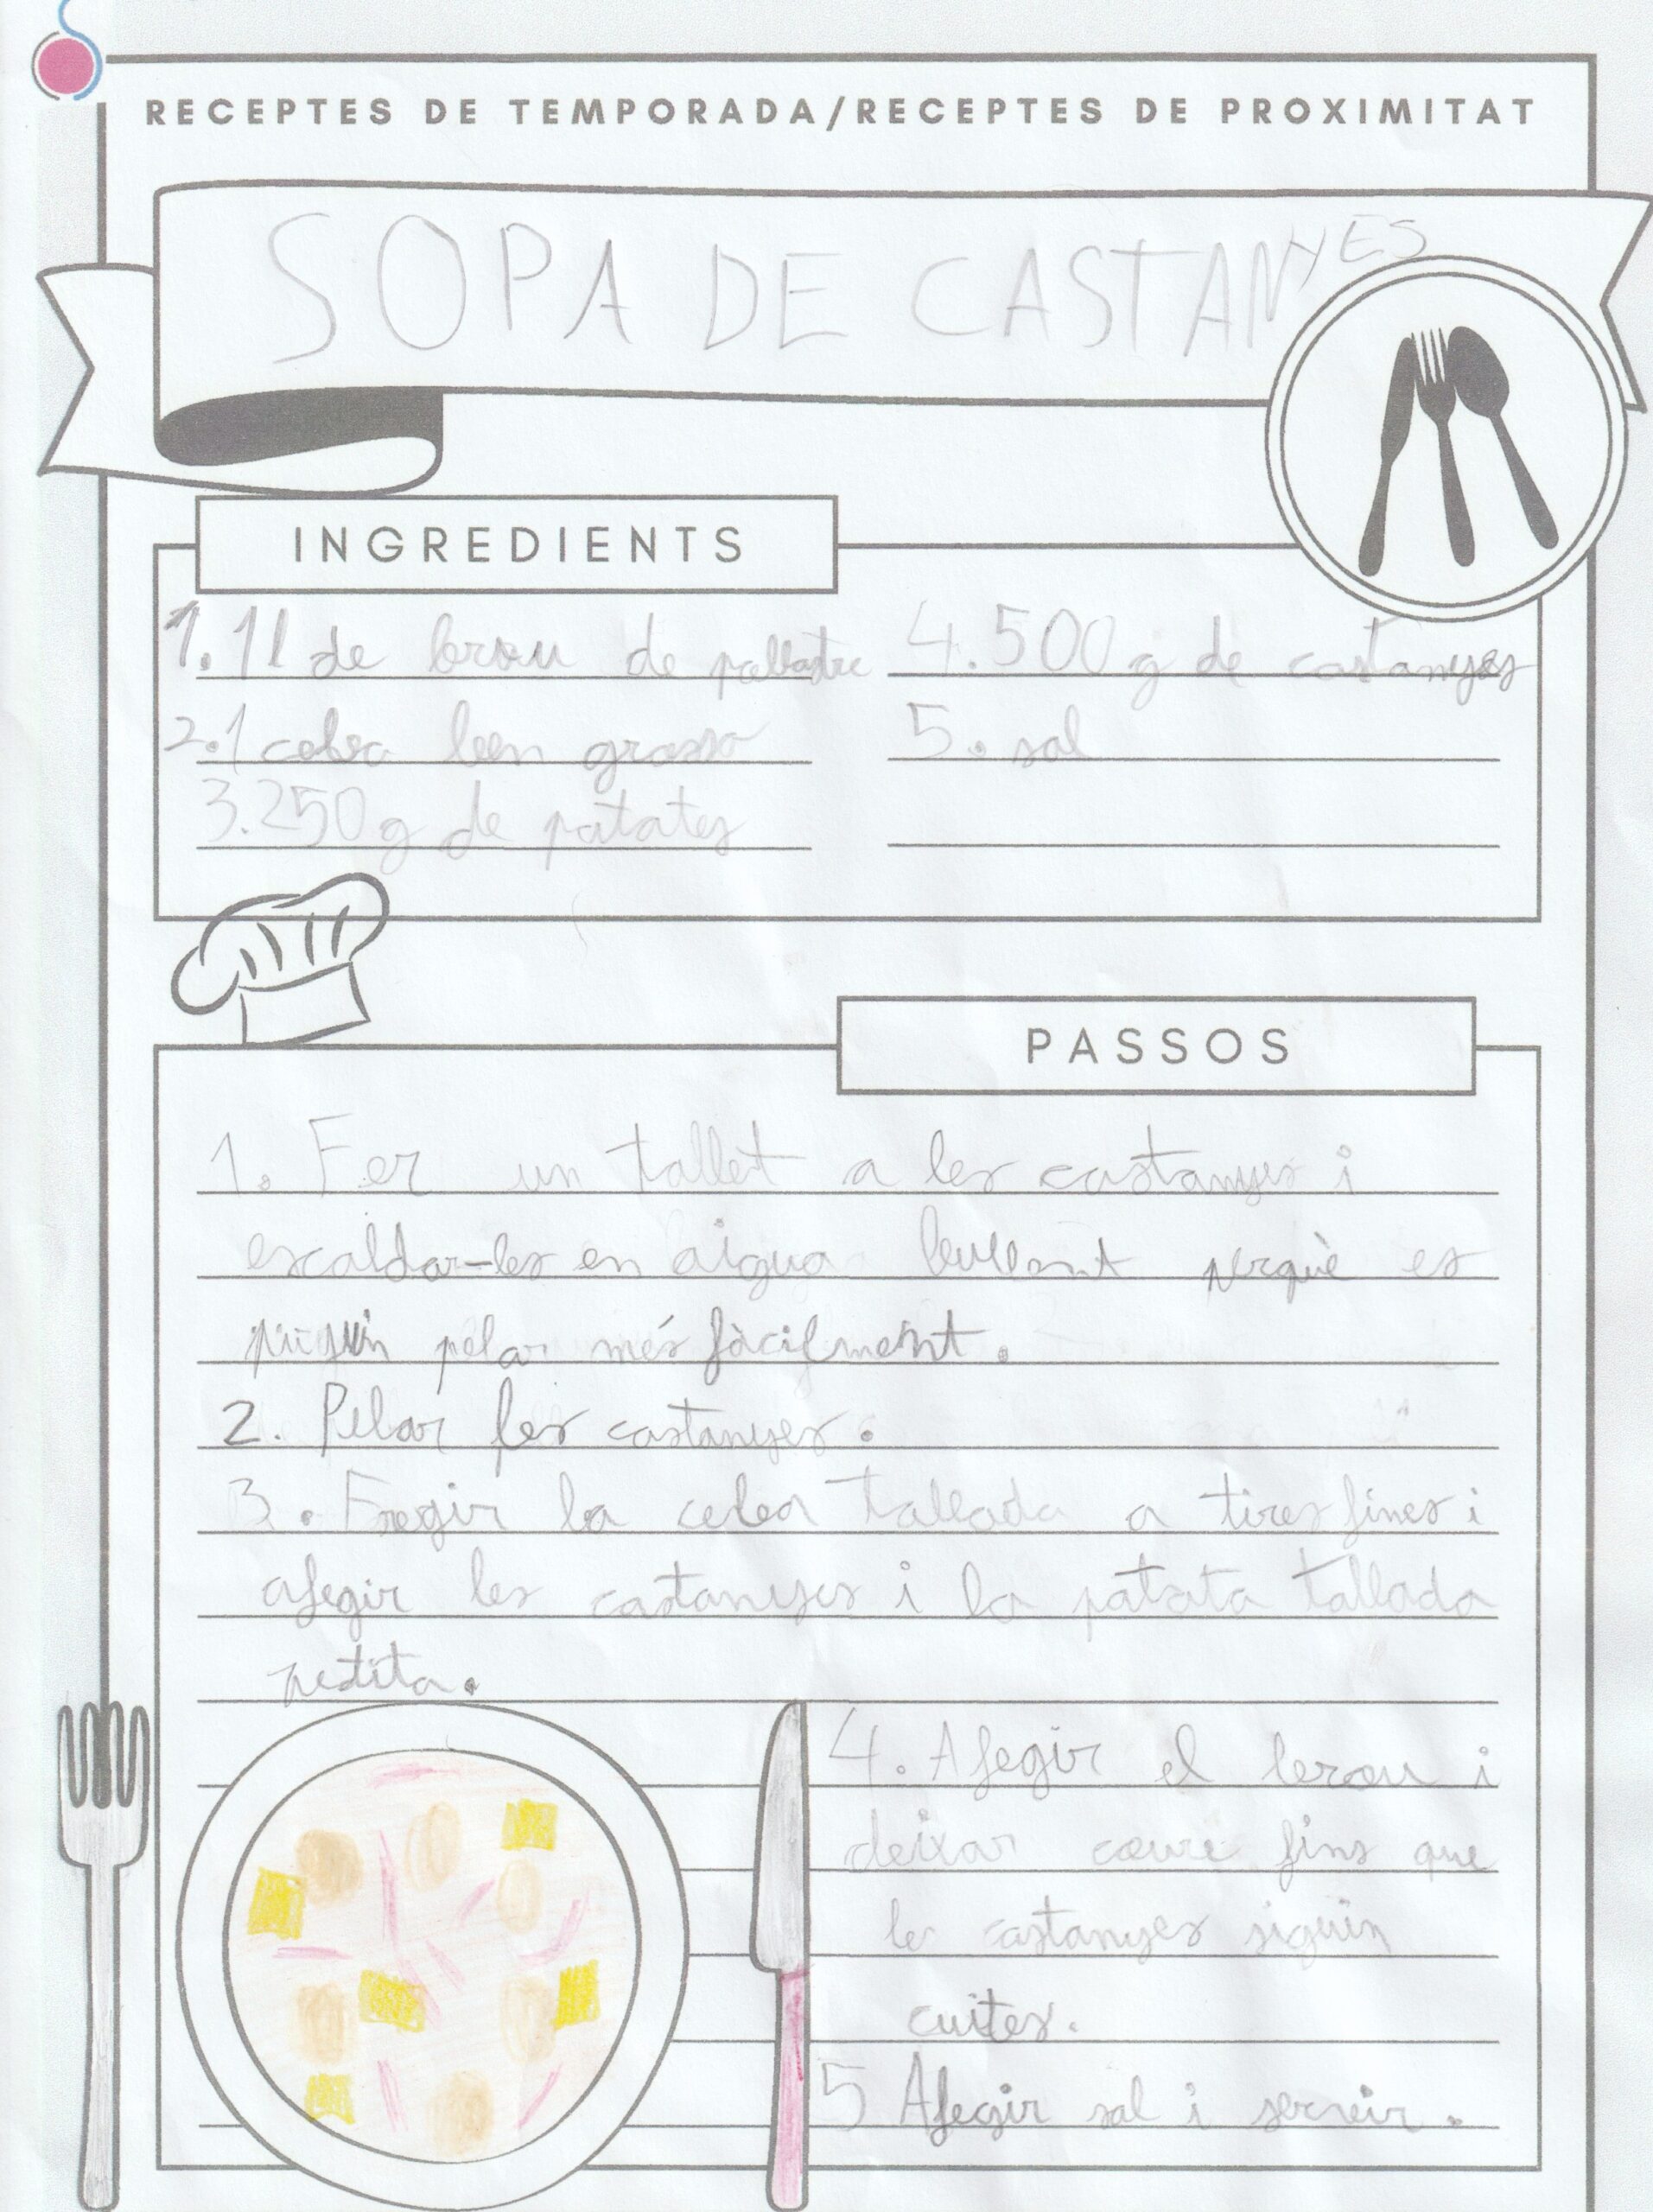 RECEPTES DE TEMPORADA/RECEPTES DE PROXIMITAT
SOPA DE CASTANYES
INGREDIENTS
1. 1l de brou de pollastre
2. 1 ceba ben grossa
3. 250 g de patates
4. 500 g de castanyes
5. sal
PASSOS
1. Fer un tallet a les castanyes i
escaldar-les en aigua bullent perquè es
puguin pelar més fàcilment.
2. Pelar les castanyes.
3. Fregir la ceba tallada a tires fines i
afegir les castanyes i la patata tallada
petita.
4. Afegir el brou i
deixar coure fins que
les castanyes siguin
cuites.
5 Afegir sal i servir.